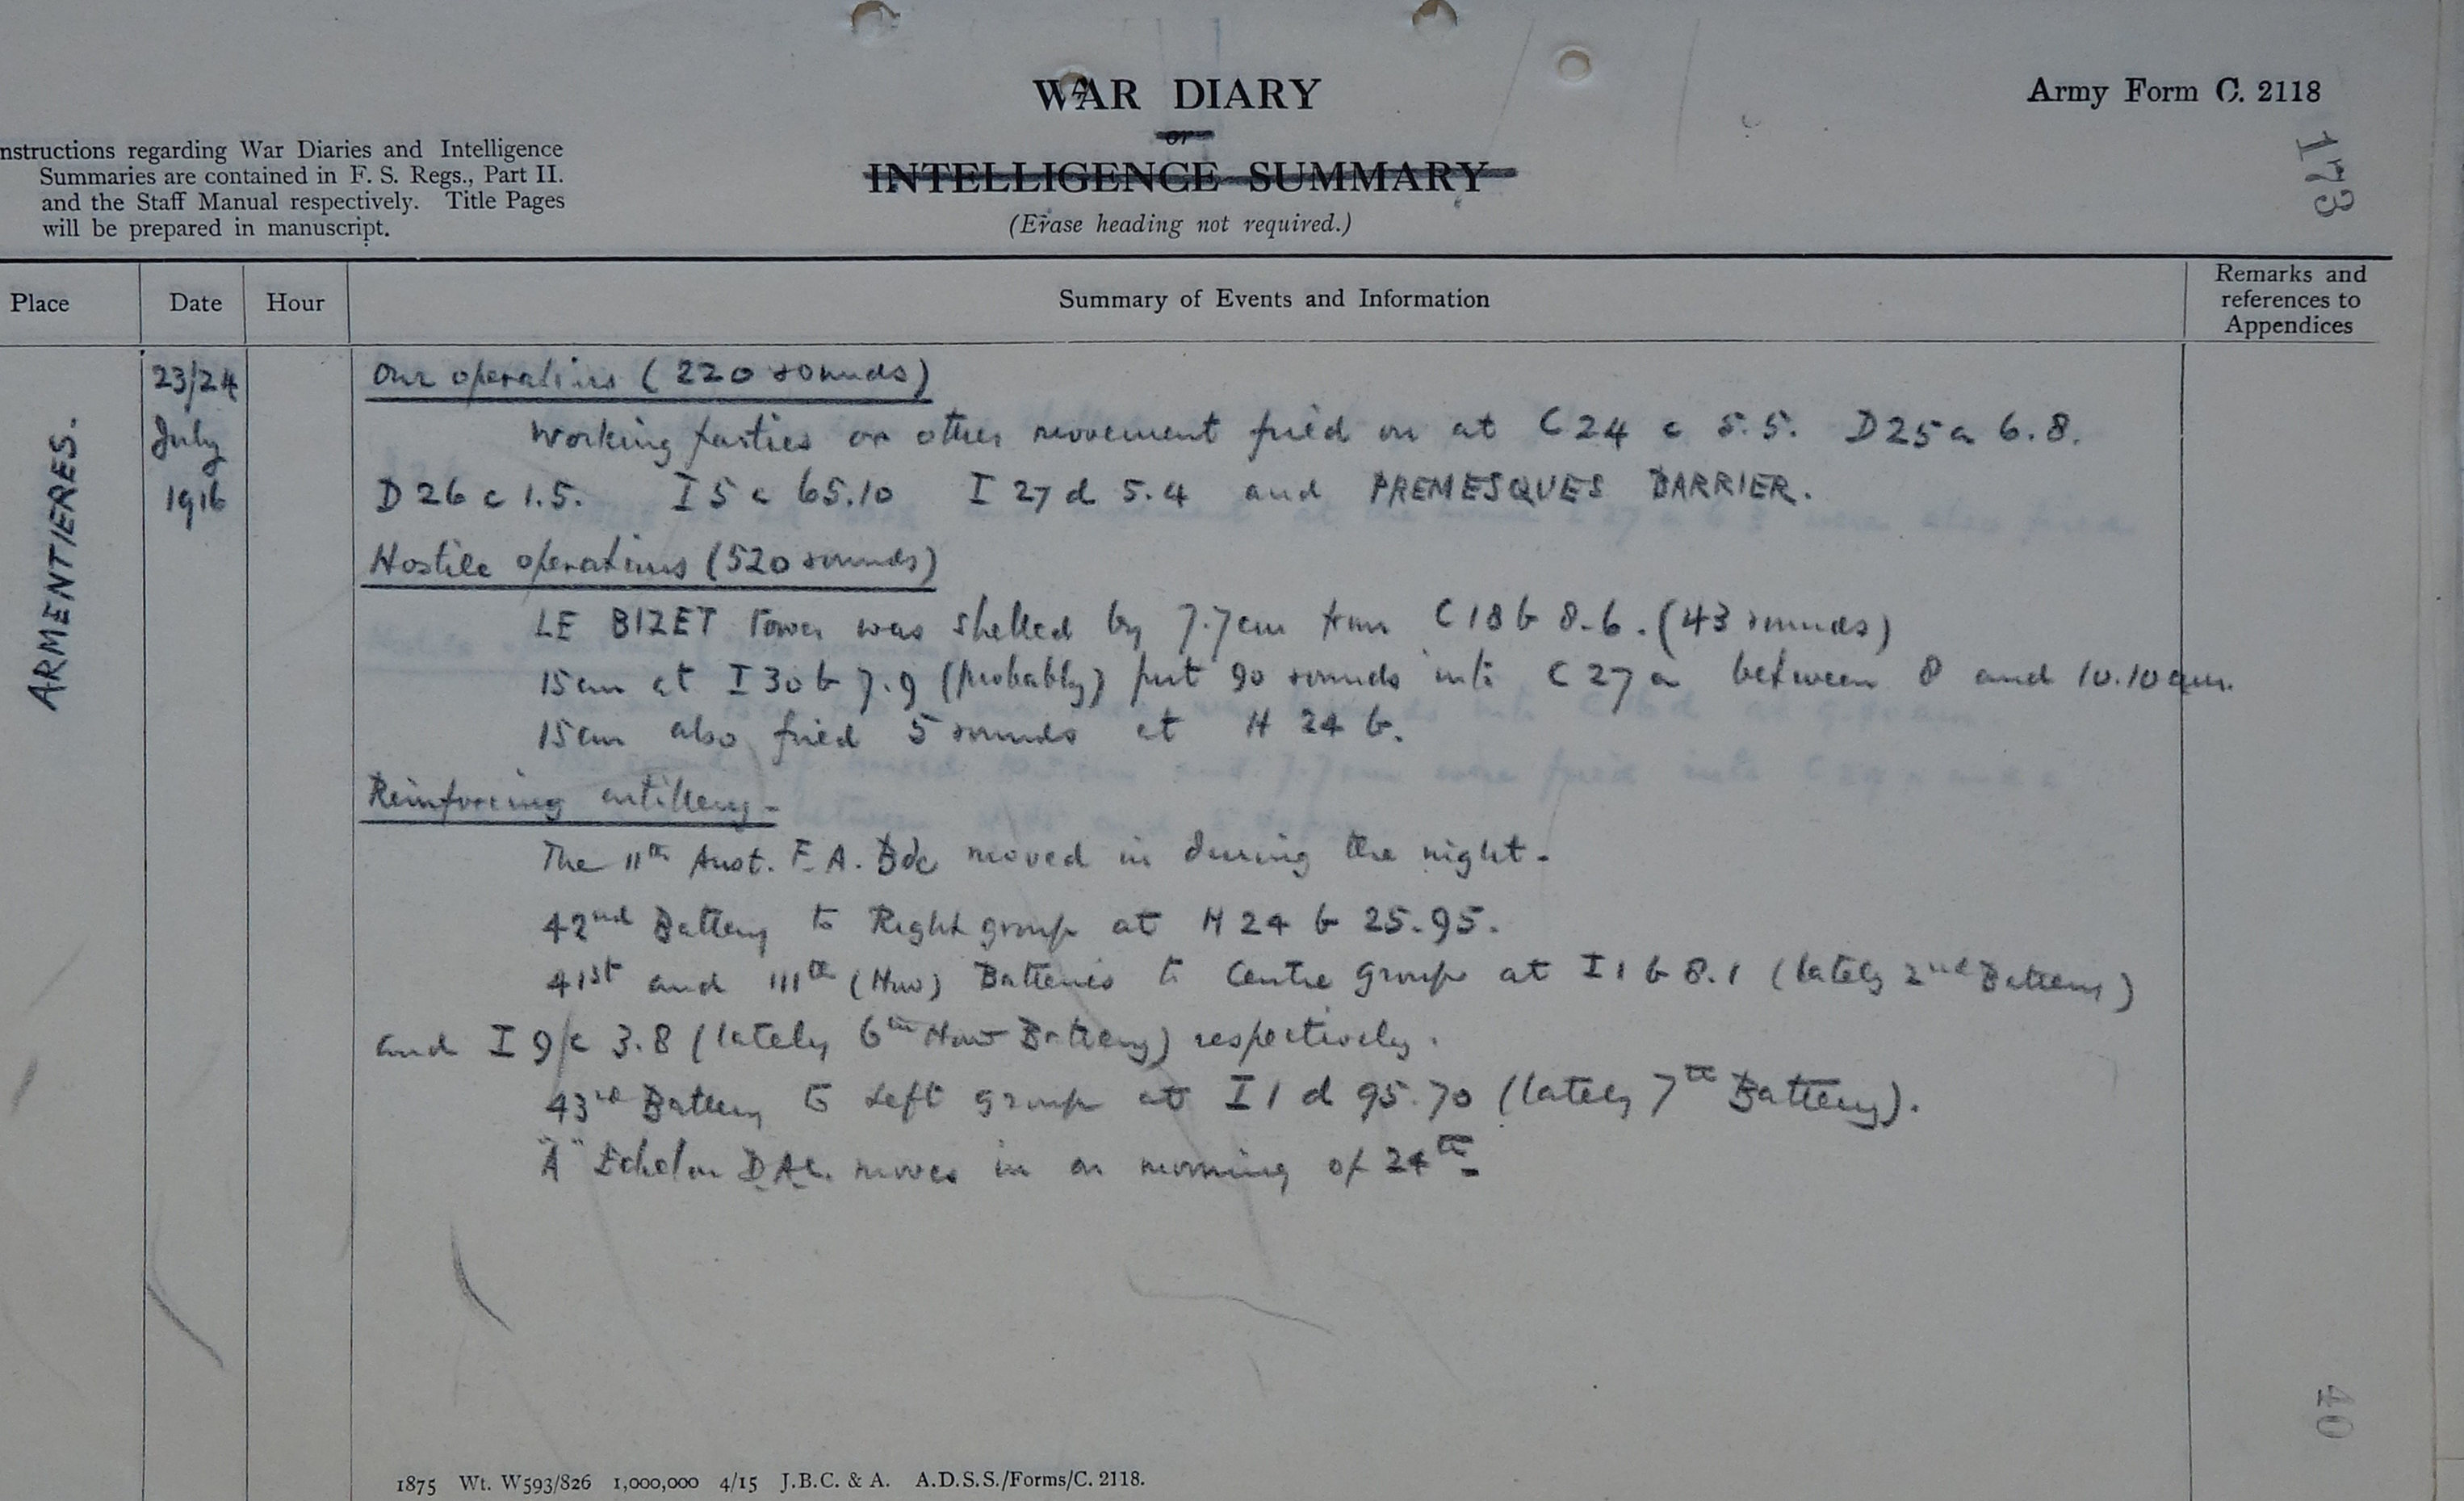 WAR DIARY
or
INTELLIGENCE SUMMARY
(Erase heading not required.)
Army Form C. 2118
173
nstructions regarding War Diaries and Intelligence
Summaries are contained in F. S. Regs., Part II.
and the Staff Manual respectively. Title Pages
will be prepared in manuscript.
Place Date Hour Summary of Events and Information Remarks and
references to
Appendices
ARMENTIERES.
23/24
July
1916
Our operations (220 rounds)
Working parties or other movement fired on at C 24 c 5.5. D 25 a 6.8.
D 26 c 1.5. I 5 c 65.10 I 27 d 5.4 and PREMESQUES BARRIER.
Hostile operations (520 rounds)
LE BIZET Tower was shelled by 7.7cm from C 18 b 8.6. (43 rounds)
15cm at I 30 b 7.9 (probably) put 90 rounds into C 27 a between 8 and 10.10 am.
15cm also fired 5 rounds at H 24 b.
Reinforcing artillery -
The 11th Aust. F.A. Bde moved in during the night -
42nd Battery to Right group at H 24 b 25.95.
41st and 111th (How) Batteries to Centre group at I 1 b 8.1 (lately 2nd Battery)
and I 9 c 3.8 (lately 6th How Battery) respectively.
43rd Battery to Left group at I 1 d 95.70 (lately 7th Battery).
"A" Echelon D.A.C. moves in on morning of 24th -
40
1875 Wt. W593/826 1,000,000 4/15 J.B.C. & A. A.D.S.S./Forms/C. 2118.